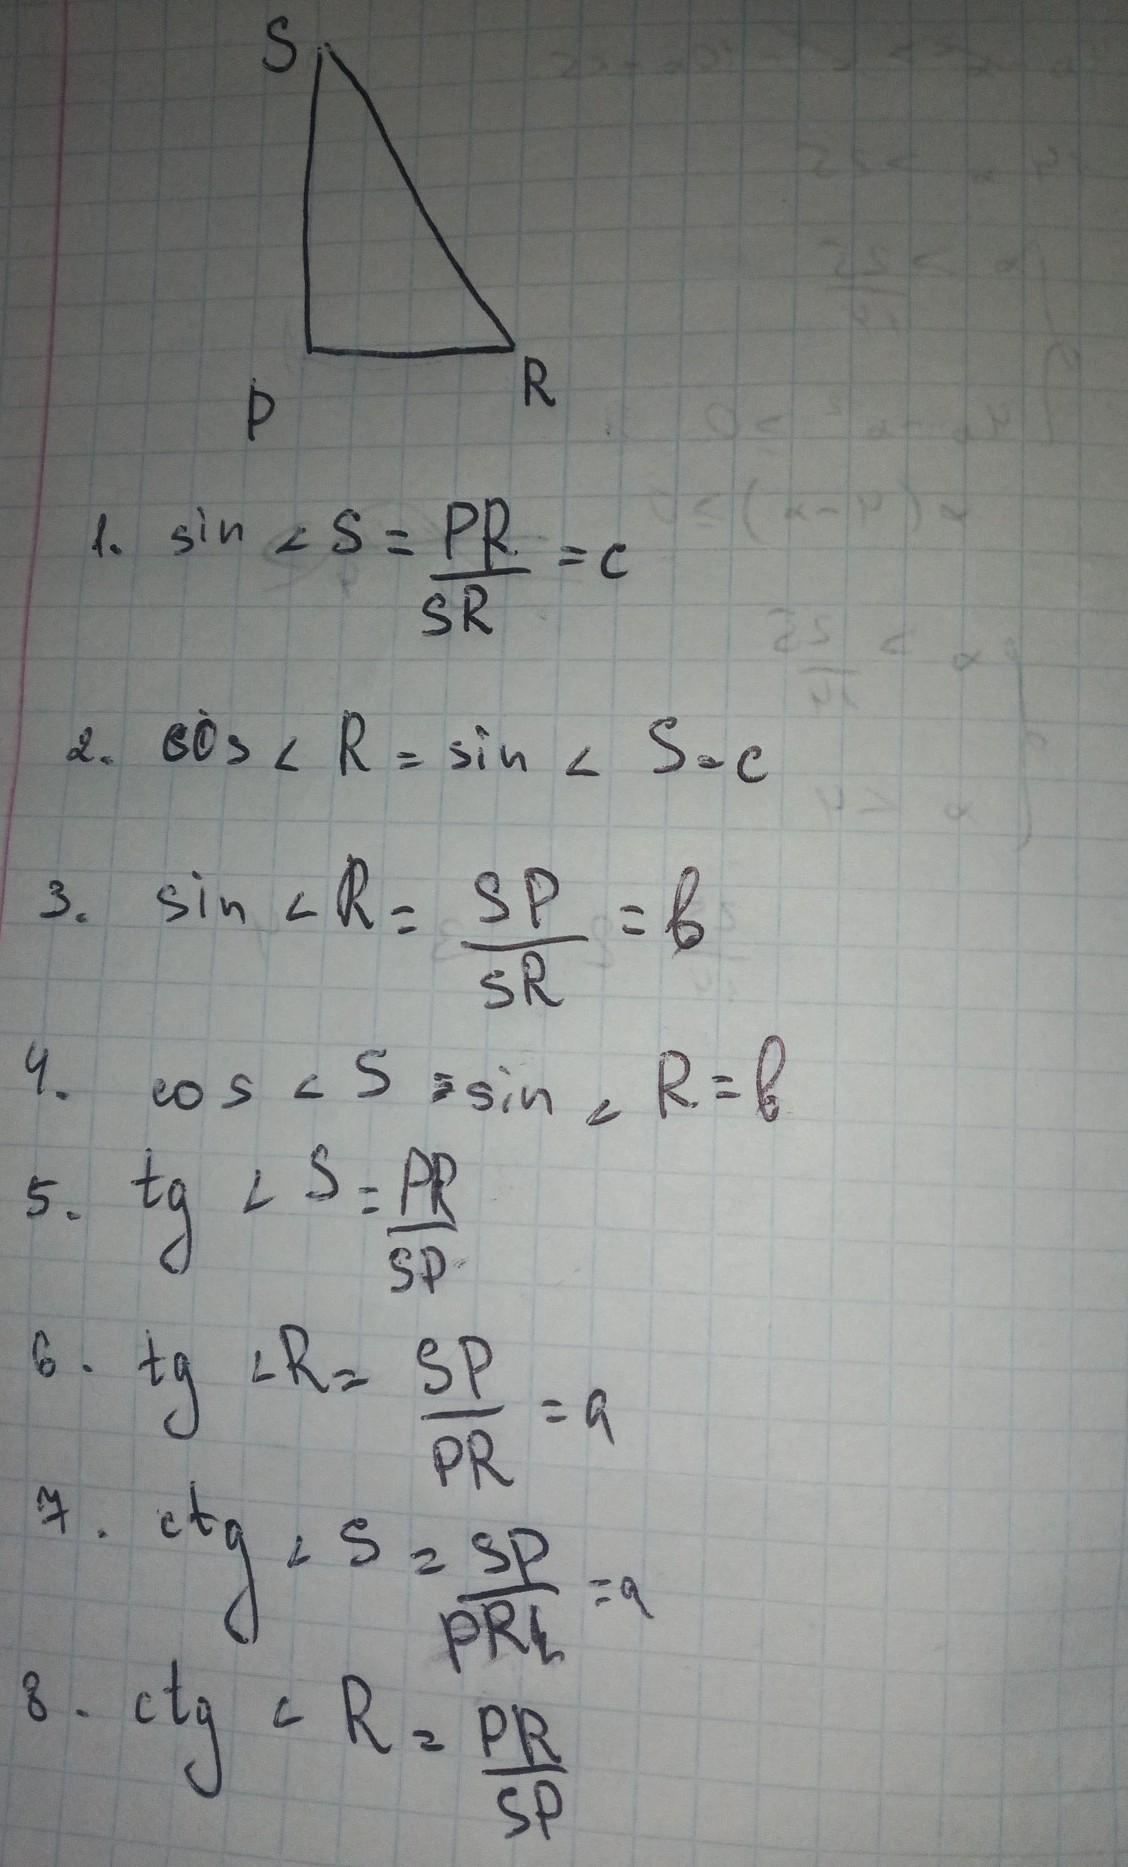 S
P
R
1. sin < S = PR/SR = c
2. cos < R = sin < S = c
3. sin < R = SP/SR = b
4. cos < S = sin < R = b
5. tg < S = PR/SP
6. tg < R = SP/PR = a
7. ctg < S = SP/PR = a
8. ctg < R = PR/SP